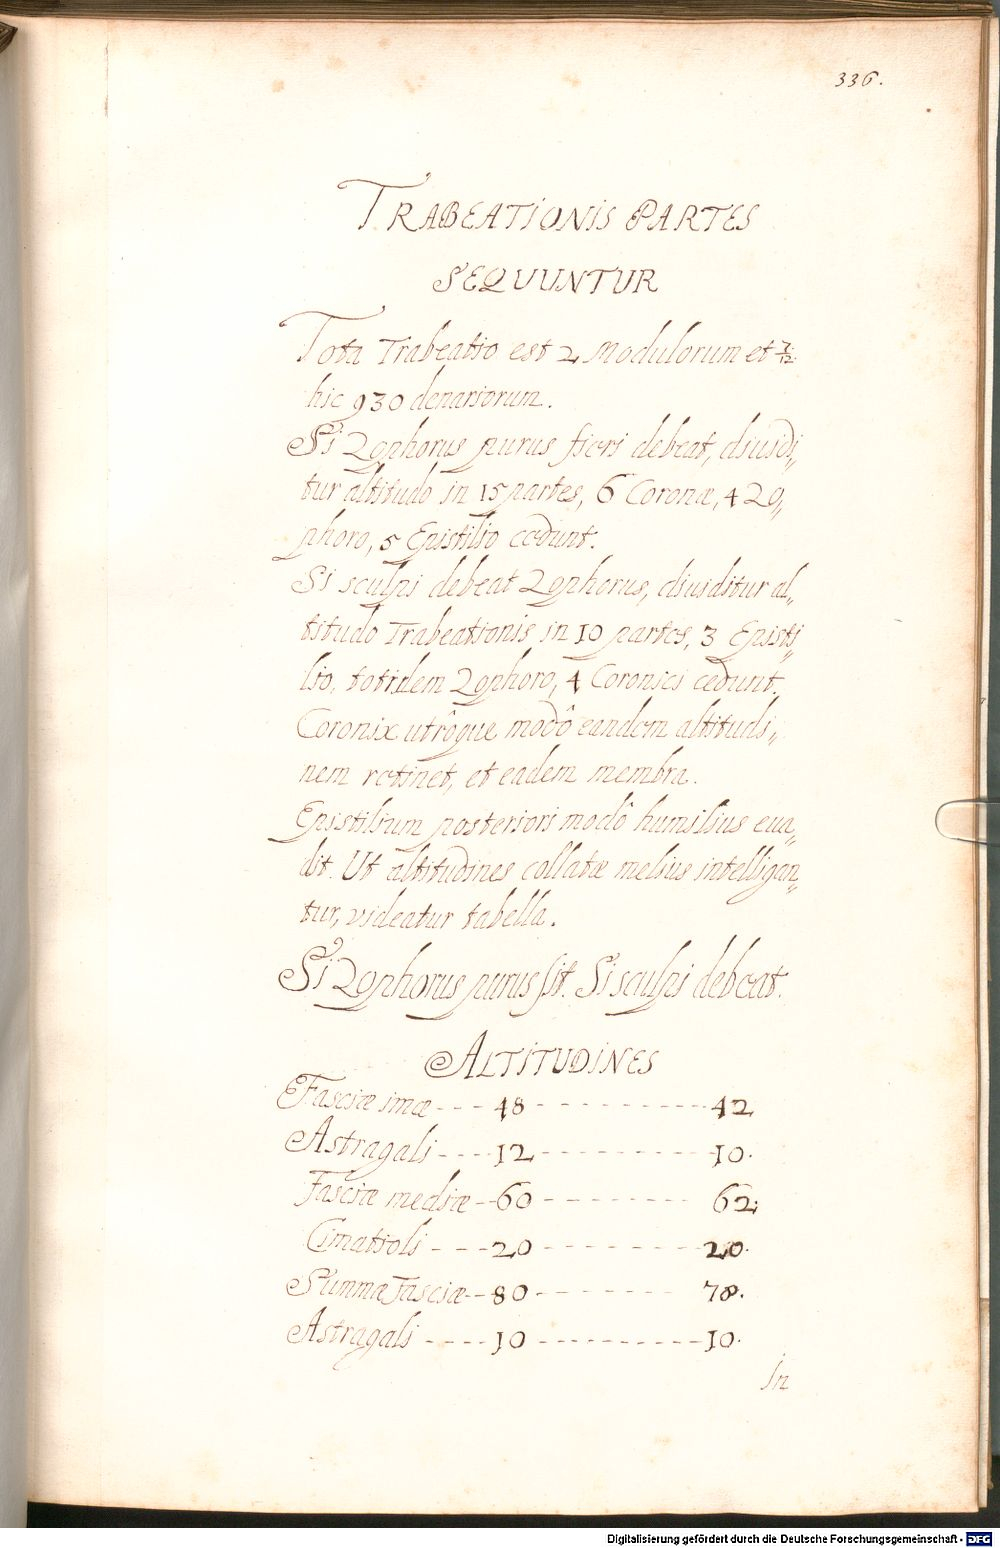 336.
TRABEATIONIS PARTES
SEQUUNTUR
Tota Trabeatio est 2 Modulorum et 7/12
hic 930 denariorum.
Si Zophorus purus fieri debeat, diuidi„
tur altitudo in 15 partes, 6 Coronæ, 4 Zo„
phoro, 5 Epistilio cedunt.
Si sculpi debeat Zophorus, diuiditur al„
titudo Trabeationis in 10 partes, 3 Episti„
lio, totidem Zophoro, 4 Coronici cedunt.
Coronix utrôque modô eandem altitudi„
nem retinet, et eadem membra.
Epistilium posteriori modô humilius eua„
dit. Ut altitudines collatæ melius intelligan„
tur, videatur tabella.
Si Zophorus purus sit. Si sculpi debeat.
ALTITUDINES
Fasciæ imæ --- 48 ---------- 42
Astragali ---- 12 ---------- 10.
Fasciæ mediæ -- 60 --------- 62.
Cimatioli --- 20 ---------- 20.
Summæ Fasciæ -- 80 --------- 78.
Astragali ---- 10 ---------- 10.
In
Digitalisierung gefördert durch die Deutsche Forschungsgemeinschaft - DFG